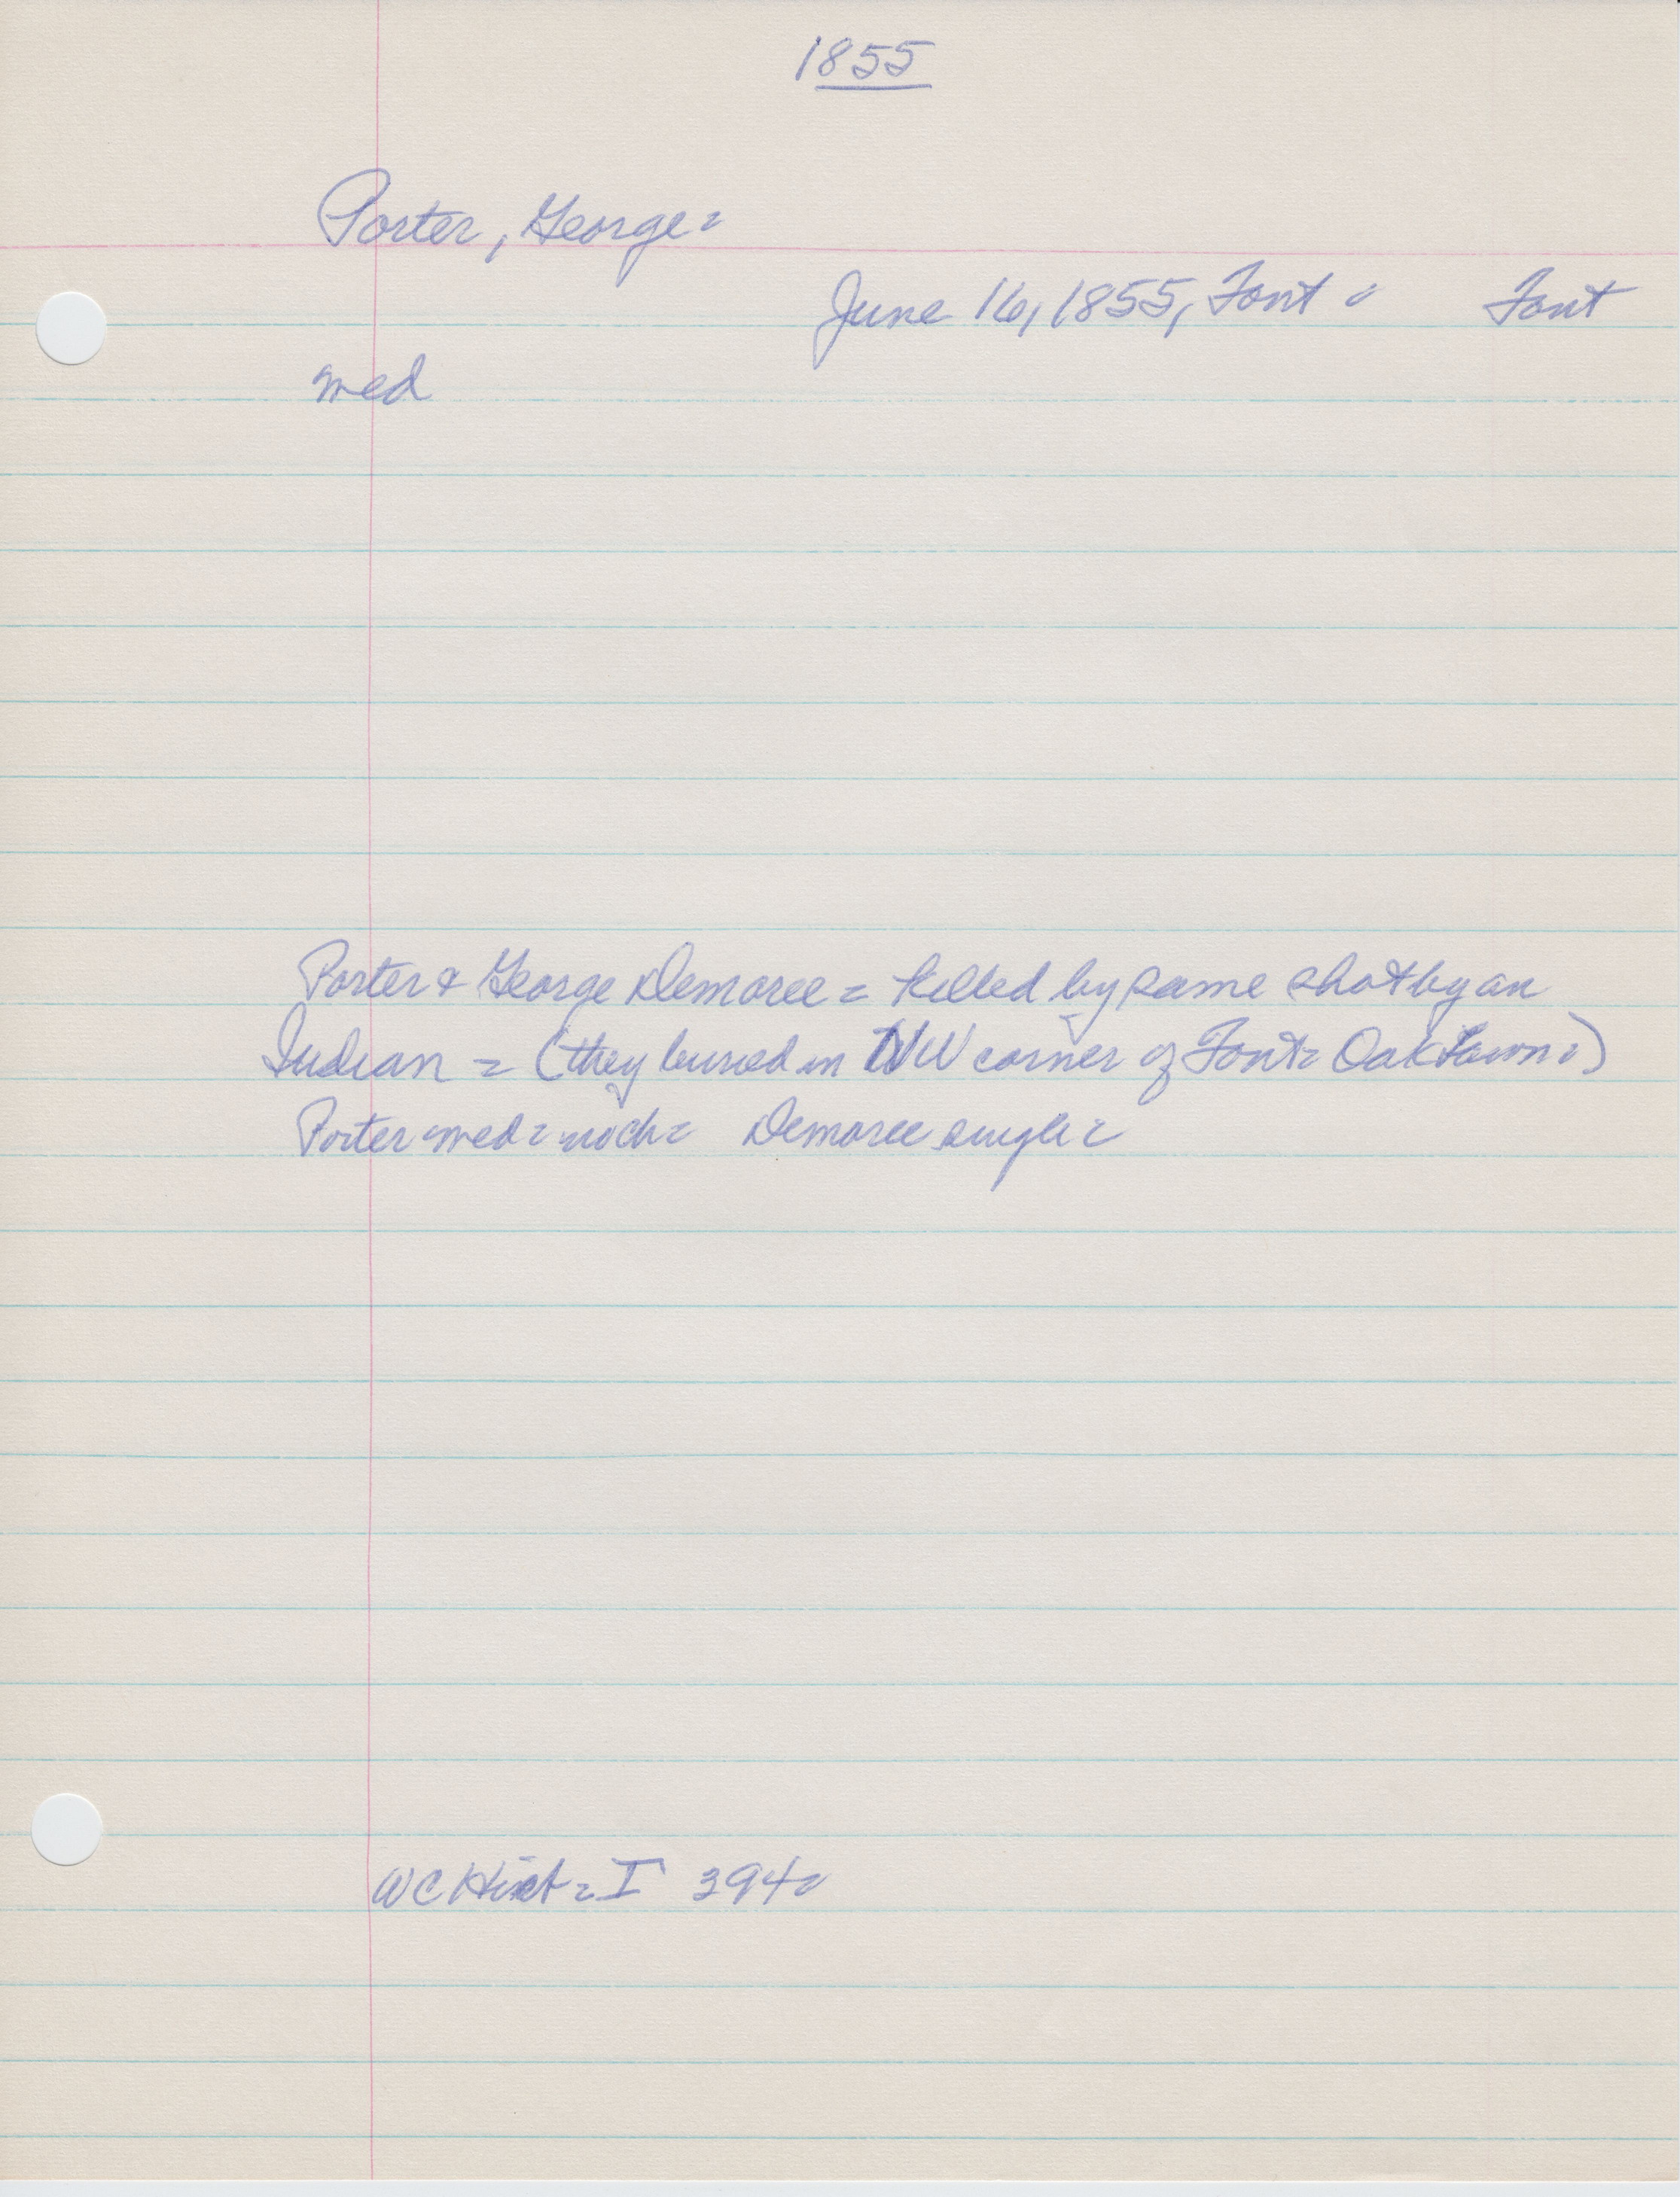 1855
Porter, George =
June 16, 1855, Font = Font
med
Porter & George Demoree = killed by same shot by an
Indian = (they buried in NW corner of Font = Oak Lawn =)
Porter med = no ch = Demoree single =
WC Hist = I 394 =